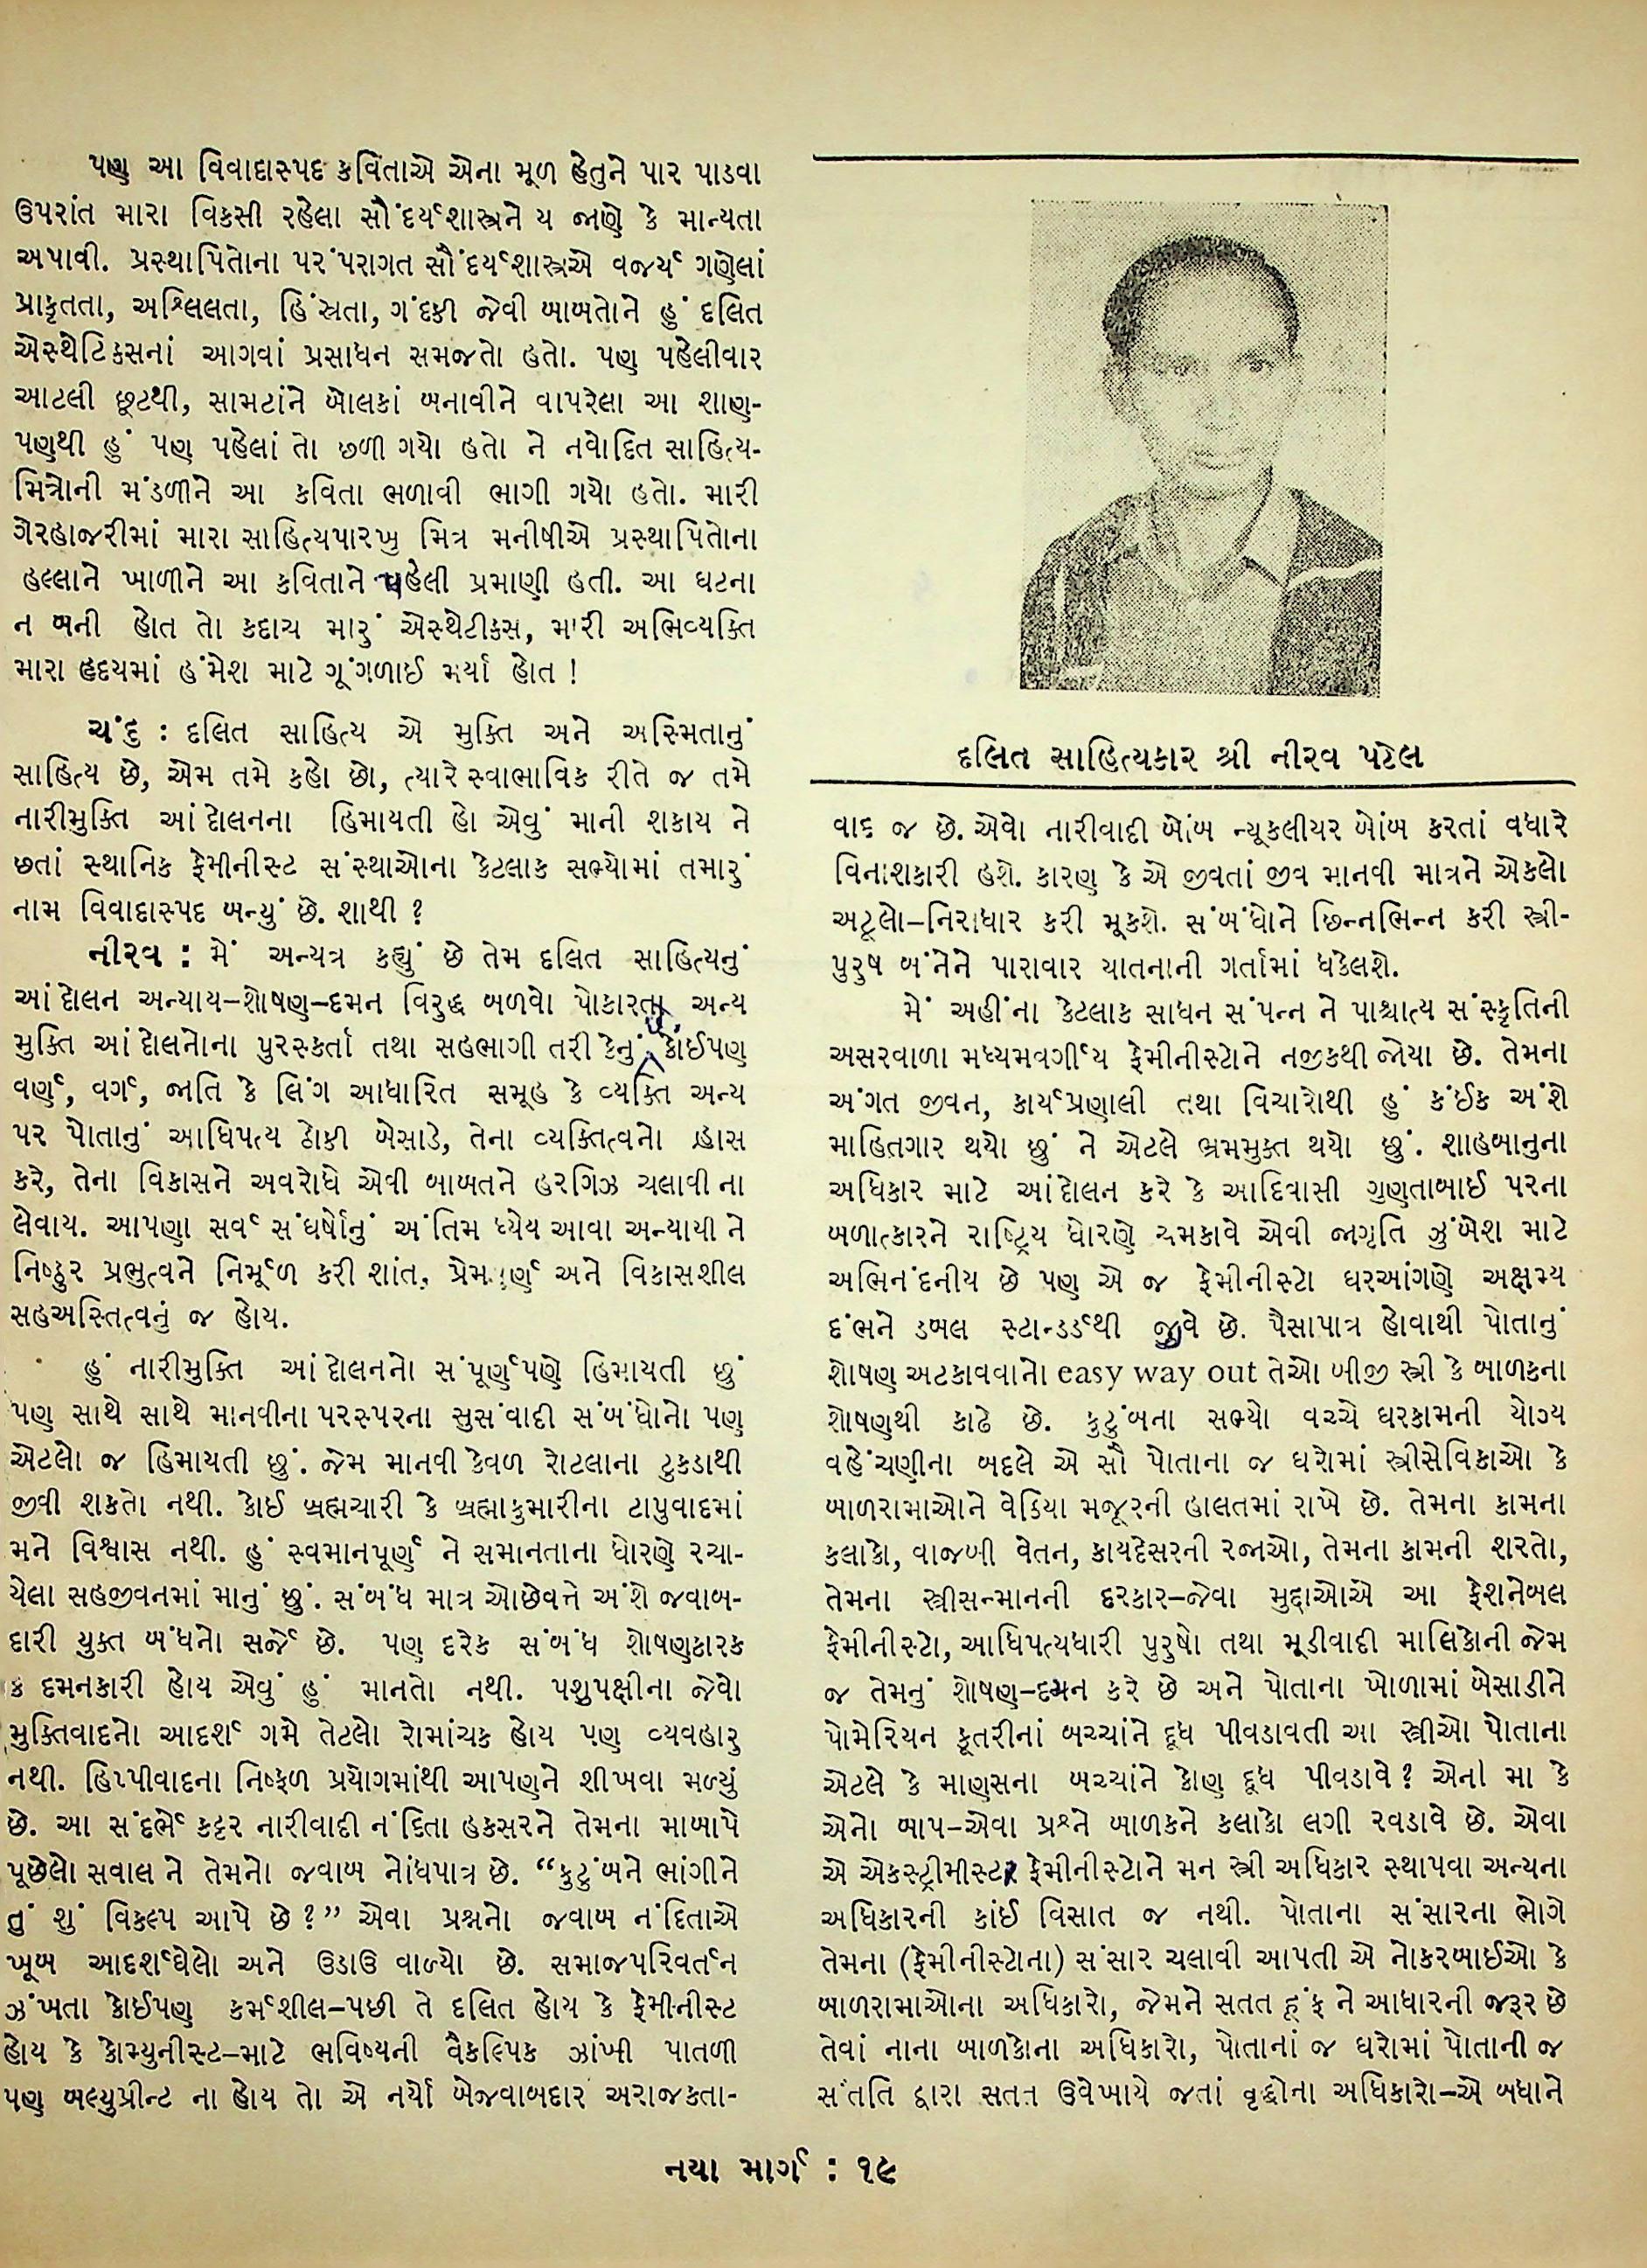 પણ આ વિવાદાસ્પદ કવિતાએ એના મૂળ હેતુને પાર પાડવા
ઉપરાંત મારા વિકસી રહેલા સૌંદર્યશાસ્ત્રને ય જાણે કે માન્યતા
અપાવી. પ્રસ્થાપિતોના પરંપરાગત સૌંદર્યશાસ્ત્રએ વર્જ્ય ગણેલાં
પ્રાકૃતતા, અશ્લિલતા, હિંસ્રતા, ગંદકી જેવી બાબતોને હું દલિત
એસ્થેટિકસનાં આગવાં પ્રસાધન સમજતો હતો. પણ પહેલીવાર
આટલી છૂટથી, સામટાંને બોલકાં બનાવીને વાપરેલા આ શાણ-
પણથી હું પણ પહેલાં તો છળી ગયો હતો ને નવોદિત સાહિત્ય-
મિત્રોની મંડળીને આ કવિતા ભળાવી ભાગી ગયો હતો. મારી
ગેરહાજરીમાં મારા સાહિત્યપારખુ મિત્ર મનીષીએ પ્રસ્થાપિતોના
હલ્લાને ખાળીને આ કવિતાને પહેલી પ્રમાણી હતી. આ ઘટના
ન બની હોત તો કદાચ મારું એસ્થેટીકસ, મારી અભિવ્યક્તિ
મારા હૃદયમાં હંમેશ માટે ગૂંગળાઈ મર્યા હોત !
ચંદુ : દલિત સાહિત્ય એ મુક્તિ અને અસ્મિતાનું
સાહિત્ય છે, એમ તમે કહો છો, ત્યારે સ્વાભાવિક રીતે જ તમે
નારીમુક્તિ આંદોલનના હિમાયતી હો એવું માની શકાય ને
છતાં સ્થાનિક ફેમીનીસ્ટ સંસ્થાઓના કેટલાક સભ્યોમાં તમારું
નામ વિવાદાસ્પદ બન્યું છે. શાથી ?
નીરવ : મેં અન્યત્ર કહ્યું છે તેમ દલિત સાહિત્યનું
આંદોલન અન્યાય–શોષણ–દમન વિરુદ્ધ બળવો પોકારતા અન્ય
મુક્તિ આંદોલનોના પુરસ્કર્તા તથા સહભાગી તરીકેનું છે. કોઈપણ
વર્ણ, વર્ગ, જાતિ કે લિંગ આધારિત સમૂહ કે વ્યક્તિ અન્ય
પર પોતાનું આધિપત્ય ઠોકી બેસાડે, તેના વ્યક્તિત્વનો હ્રાસ
કરે, તેના વિકાસને અવરોધે એવી બાબતને હરગિઝ ચલાવી ના
લેવાય. આપણા સર્વ સંઘર્ષોનું અંતિમ ધ્યેય આવા અન્યાયી ને
નિષ્ઠુર પ્રભુત્વને નિર્મૂળ કરી શાંત, પ્રેમપૂર્ણ અને વિકાસશીલ
સહઅસ્તિત્વનું જ હોય.
હું નારીમુક્તિ આંદોલનનો સંપૂર્ણપણે હિમાયતી છું
પણ સાથે સાથે માનવીના પરસ્પરના સુસંવાદી સંબંધોનો પણ
એટલો જ હિમાયતી છું. જેમ માનવી કેવળ રોટલાના ટુકડાથી
જીવી શકતો નથી. કોઈ બ્રહ્મચારી કે બ્રહ્માકુમારીના ટાપુવાદમાં
મને વિશ્વાસ નથી. હું સ્વમાનપૂર્ણ ને સમાનતાના ધોરણે રચા-
યેલા સહજીવનમાં માનું છું. સંબંધ માત્ર ઓછેવત્તે અંશે જવાબ-
દારી યુક્ત બંધનો સર્જે છે. પણ દરેક સંબંધ શોષણકારક
ક દમનકારી હોય એવું હું માનતો નથી. પશુપક્ષીના જેવો
મુક્તિવાદનો આદર્શ ગમે તેટલો રોમાંચક હોય પણ વ્યવહારુ
નથી. હિપ્પીવાદના નિષ્ફળ પ્રયોગમાંથી આપણને શીખવા મળ્યું
છે. આ સંદર્ભે કટ્ટર નારીવાદી નંદિતા હકસરને તેમના માબાપે
પૂછેલો સવાલ ને તેમનો જવાબ નોંધપાત્ર છે. “કુટુંબને ભાંગીને
તું શું વિકલ્પ આપે છે ?” એવા પ્રશ્નનો જવાબ નંદિતાએ
ખૂબ આદર્શઘેલો અને ઉડાઉ વાળ્યો છે. સમાજપરિવર્તન
ઝંખતા કોઈપણ કર્મશીલ–પછી તે દલિત હોય કે ફેમીનીસ્ટ
હોય કે કોમ્યુનીસ્ટ–માટે ભવિષ્યની વૈકલ્પિક ઝાંખી પાતળી
પણ બલ્યુપ્રીન્ટ ના હોય તો એ નર્યો બેજવાબદાર અરાજકતા-
દલિત સાહિત્યકાર શ્રી નીરવ પટેલ
વાદ જ છે. એવો નારીવાદી બોંબ ન્યૂકલીયર બોંબ કરતાં વધારે
વિનાશકારી હશે. કારણ કે એ જીવતાં જીવ માનવી માત્રને એકલો
અટૂલો–નિરાધાર કરી મૂકશે. સંબંધોને છિન્નભિન્ન કરી સ્ત્રી-
પુરુષ બંનેને પારાવાર યાતનાની ગર્તામાં ધકેલશે.
મેં અહીંના કેટલાક સાધન સંપન્ન ને પાશ્ચાત્ય સંસ્કૃતિની
અસરવાળા મધ્યમવર્ગીય ફેમીનીસ્ટોને નજીકથી જોયા છે. તેમના
અંગત જીવન, કાર્યપ્રણાલી તથા વિચારોથી હું કંઈક અંશે
માહિતગાર થયો છું ને એટલે ભ્રમમુક્ત થયો છું. શાહબાનુના
અધિકાર માટે આંદોલન કરે કે આદિવાસી ગુણતાબાઈ પરના
બળાત્કારને રાષ્ટ્રિય ધોરણે ચમકાવે એવી જાગૃતિ ઝુંબેશ માટે
અભિનંદનીય છે પણ એ જ ફેમીનીસ્ટો ઘરઆંગણે અક્ષમ્ય
દંભને ડબલ સ્ટાન્ડર્ડથી જીવે છે. પૈસાપાત્ર હોવાથી પોતાનું
શોષણ અટકાવવાનો easy way out તેઓ બીજી સ્ત્રી કે બાળકના
શોષણથી કાઢે છે. કુટુંબના સભ્યો વચ્ચે ઘરકામની યોગ્ય
વહેંચણીના બદલે એ સૌ પોતાના જ ઘરોમાં સ્ત્રીસેવિકાઓ કે
બાળરામાઓને વેઠિયા મજૂરની હાલતમાં રાખે છે. તેમના કામના
કલાકો, વાજબી વેતન, કાયદેસરની રજાઓ, તેમના કામની શરતો,
તેમના સ્ત્રીસન્માનની દરકાર–જેવા મુદ્દાઓએ આ ફેશનેબલ
ફેમીનીસ્ટો, આધિપત્યધારી પુરુષો તથા મૂડીવાદી માલિકોની જેમ
જ તેમનું શોષણ–દમન કરે છે અને પોતાના ખોળામાં બેસાડીને
પોમેરિયન કૂતરીનાં બચ્ચાંને દૂધ પીવડાવતી આ સ્ત્રીઓ પોતાના
એટલે કે માણસના બચ્ચાંને કોણ દૂધ પીવડાવે ? એની મા કે
એનો બાપ–એવા પ્રશ્ને બાળકને કલાકો લગી રવડાવે છે. એવા
એ એકસ્ટ્રીમીસ્ટ ફેમીનીસ્ટોને મન સ્ત્રી અધિકાર સ્થાપવા અન્યના
અધિકારની કાંઈ વિસાત જ નથી. પોતાના સંસારના ભોગે
તેમના (ફેમીનીસ્ટોના) સંસાર ચલાવી આપતી એ નોકરબાઈઓ કે
બાળરામાઓના અધિકારો, જેમને સતત હૂંફ ને આધારની જરૂર છે
તેવાં નાના બાળકોના અધિકારો, પોતાનાં જ ઘરોમાં પોતાની જ
સંતતિ દ્વારા સતત ઉવેખાયે જતાં વૃદ્ધોના અધિકારો–એ બધાને
નયા માર્ગ : ૧૯